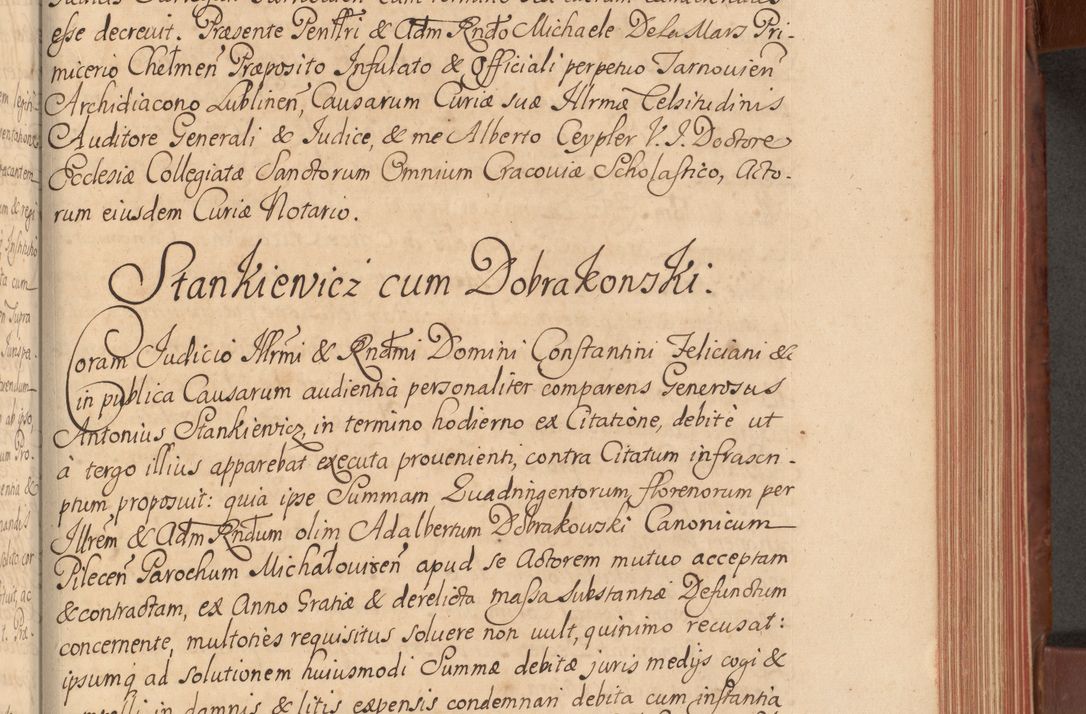 esse decreuit. Præsente Penſſri & Adm Rndo Michaele De La Mars Pri-
micerio Chelmen Præposito Infulato & Officiali perpetuo Tarnovien
Archidiacono Lublinen, Causarum Curiæ suæ Illrmæ Celsitudinis
Auditore Generali & Iudice, & me Alberto Ceypler V. I. Doctore
Ecclesiæ Collegiatæ Sanctorum Omnium Cracoviæ Scholastico, Acto-
rum eiusdem Curiæ Notario.
Stankiewicz cum Dobrakowski.
Coram Iudicio Illrmi & Rndmi Domini Constantini Feliciani &c
in publica Causarum audientia personaliter comparens Generosus
Antonius Stankiewicz, in termino hodierno ex Citatione, debitè ut
à tergo illius apparebat executa provenienti, contra Citatum infrascri-
ptum proposuit: quia ipse Summam Quadringentorum florenorum per
Illrem & Adm Rndum olim Adalbertum Dobrakowski Canonicum
Pilecen Parochum Michałovicen apud se Actorem mutuo acceptam
& contractam, ex Anno Gratiæ & derelicta massa substantiæ Defunctum
concernente, multoties requisitus soluere non vult, quinimo recusat:
ipsumq ad solutionem huiusmodi Summæ debitæ juris medijs cogi &
in damnis & litis expensis condemnari debita cum instantia